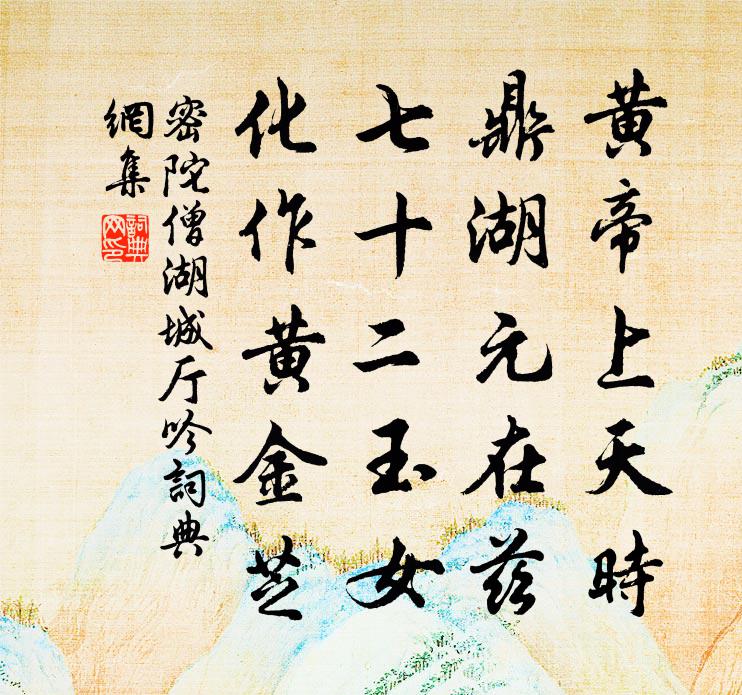 黄帝上天時
鼎湖元在茲
七十二玉女
化作黄金芝
密陀僧湖城厅吟詞典
網集
詞典网印